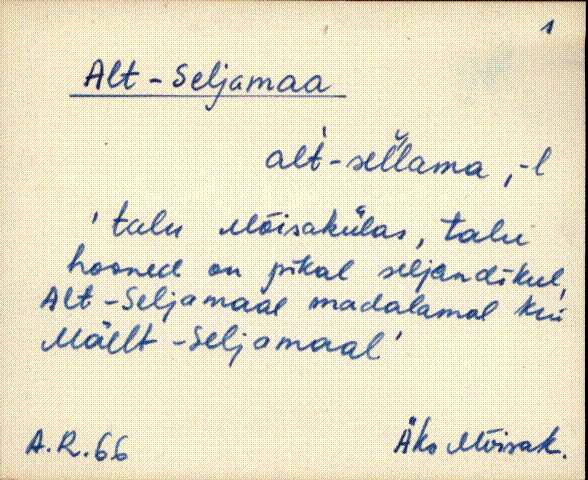 1
Alt-Seljamaa
alt-sellama, -l
'talu Mõisakülas, talu
hooned on pikal seljandikul,
Alt-Seljamaal madalamal kui
Mäelt-Seljamaal'
A.R.66 Äks Mõisak.